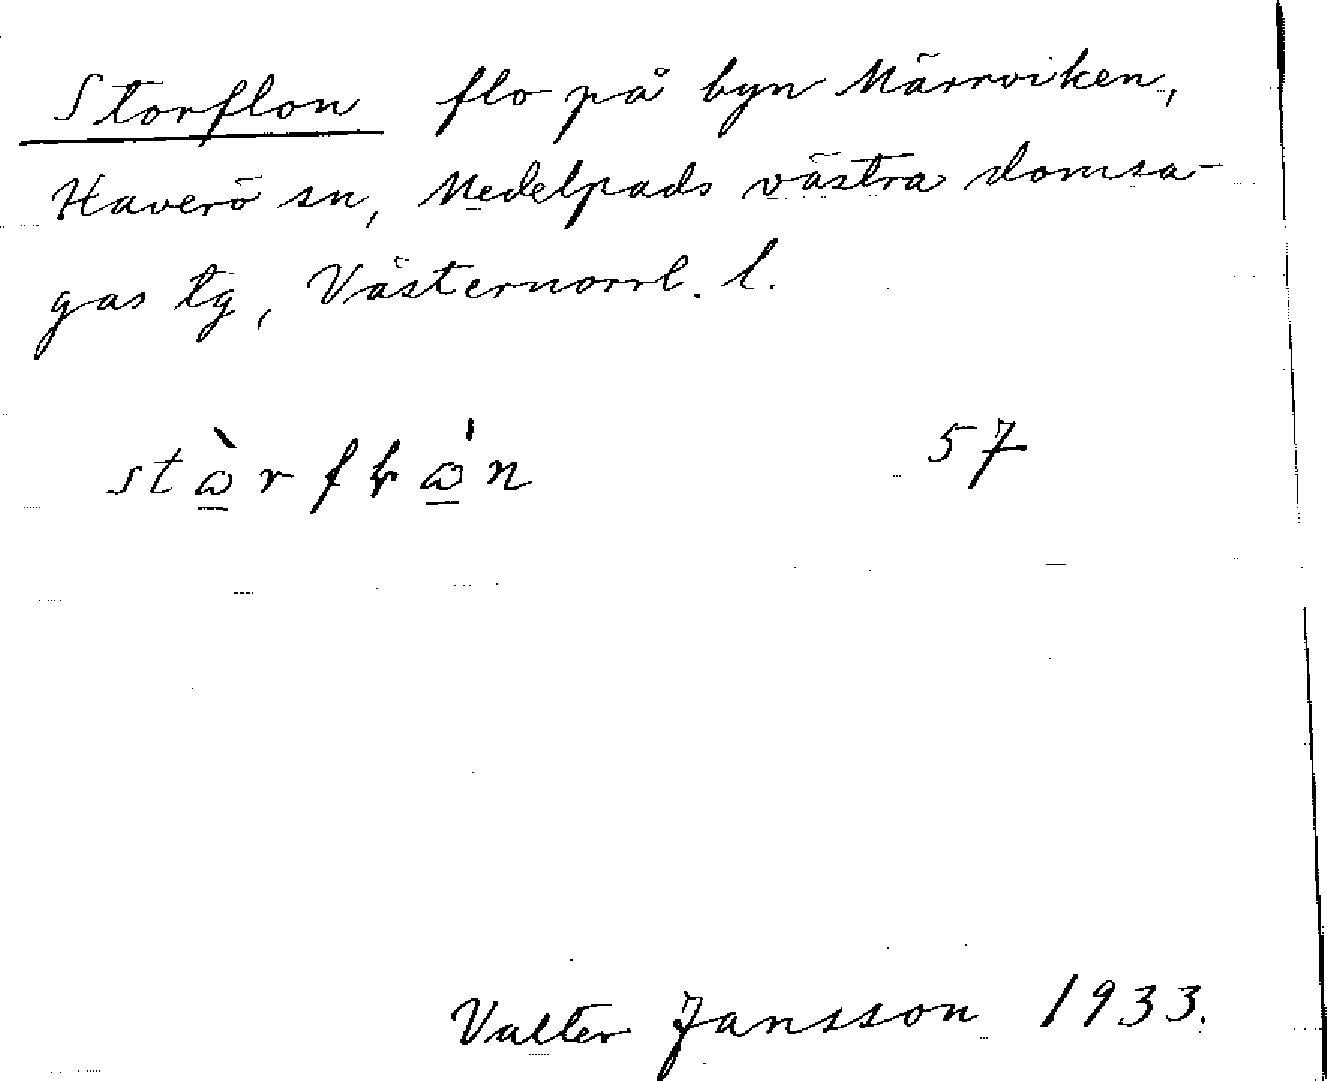 Storflon flo på byn Märrviken,
Haverö sn, Medelpads västra domsa-
gas tg, Västernorrl. l.
57
Valter Jansson 1933.